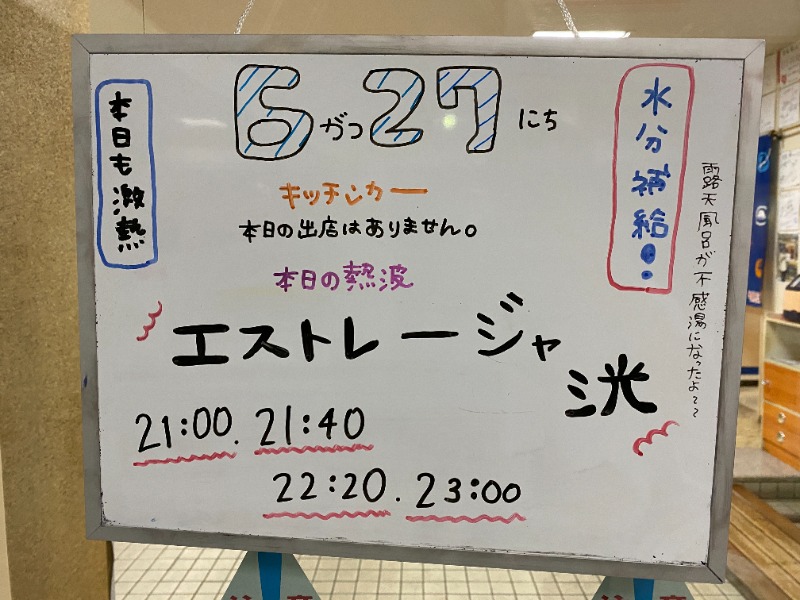 6がつ27にち
本日も激熱
水分補給!!
露天風呂が不感湯になったよ~~
キッチンカー
本日の出店はありません。
本日の熱波
エストレージャ
洸
21:00. 21:40
22:20. 23:00
注意
注意